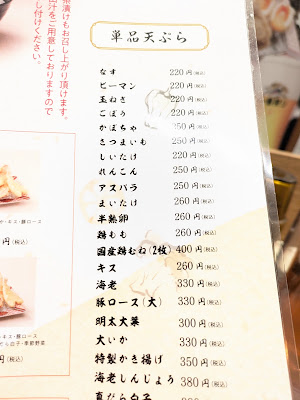 茶漬けもお召し上がり頂けます。
出汁をご用意しておりますので
し付けください。
単品天ぷら
なす 220円(税込)
ピーマン 220円(税込)
玉ねぎ 220円(税込)
ごぼう 220円(税込)
かぼちゃ 250円(税込)
さつまいも 250円(税込)
しいたけ 220円(税込)
れんこん 250円(税込)
アスパラ 250円(税込)
まいたけ 260円(税込)
半熟卵 260円(税込)
鶏もも 260円(税込)
国産鶏むね(2枚) 400円(税込)
キス 260円(税込)
海老 330円(税込)
豚ロース(大) 330円(税込)
明太大葉 300円(税込)
大いか 330円(税込)
特製かき揚げ 350円(税込)
海老しんじょう 380円(税込)
真だら白子
・キス・豚ロース
円(税込)
・キス・豚ロース
だら白子・季節野菜
円(税込)